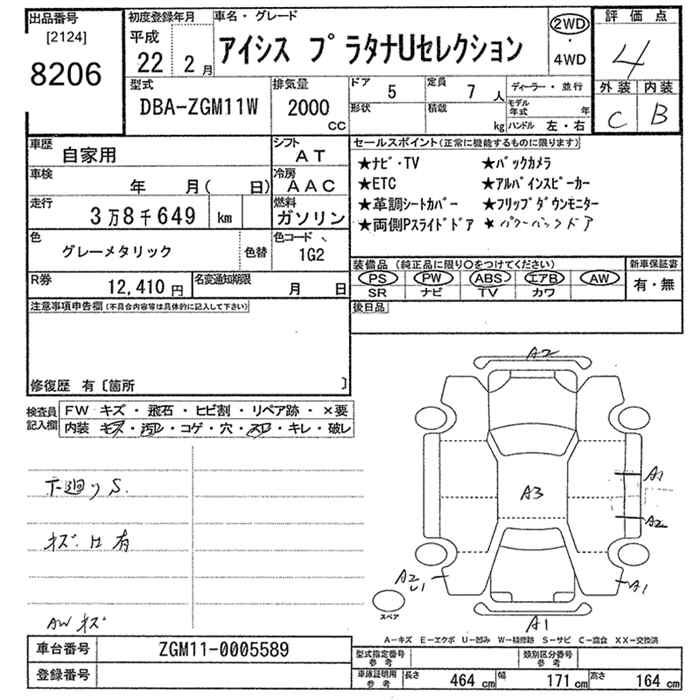 出品番号 初度登録年月 車名・グレード 2WD 評価点
[2124] 平成 アイシス プラタナUセレクション ・ 4
8206 22 2月 4WD
型式 排気量 ドア 5 定員 7人 ディーラー・並行 外装 内装
DBA-ZGM11W 2000cc 形状 積載 kg モデル年式 年 C B
ハンドル 左・右
車歴 自家用 シフト AT セールスポイント(正常に機能するものに限ります)
車検 年 月( 日) 冷房 AAC ★ナビ・TV ★バックカメラ
★ETC ★アルパインスピーカー
走行 3万8千649 km 燃料 ガソリン ★革調シートカバー ★フリップダウンモニター
★両側Pスライドドア ★パワーバックドア
色 グレーメタリック 色替 色コード 1G2
装備品(純正品に限り○をつけてください) 新車保証書
R券 12,410円 名変通知期限 月 日 PS PW ABS エアB AW 有・無
SR ナビ TV カワ
注意事項申告欄(不具合内容等は具体的に記入して下さい) 後日品
修復歴 有〔箇所 〕
検査員記入欄 FW キズ・飛石・ヒビ割・リペア跡・×要
内装 キズ・汚レ・コゲ・穴・スレ・キレ・破レ
A2
A3
A1
A2
下廻りS.
キズ 有
A2
U1
A1
A1
スペア
AW キズ
A-キズ E-エクボ U-凹み W-補修跡 S-サビ C-腐食 XX-交換済
車台番号 ZGM11-0005589 型式指定番号 参考 類別区分番号 参考
登録番号 車庫証明用 参考 長さ 464cm 幅 171cm 高さ 164cm